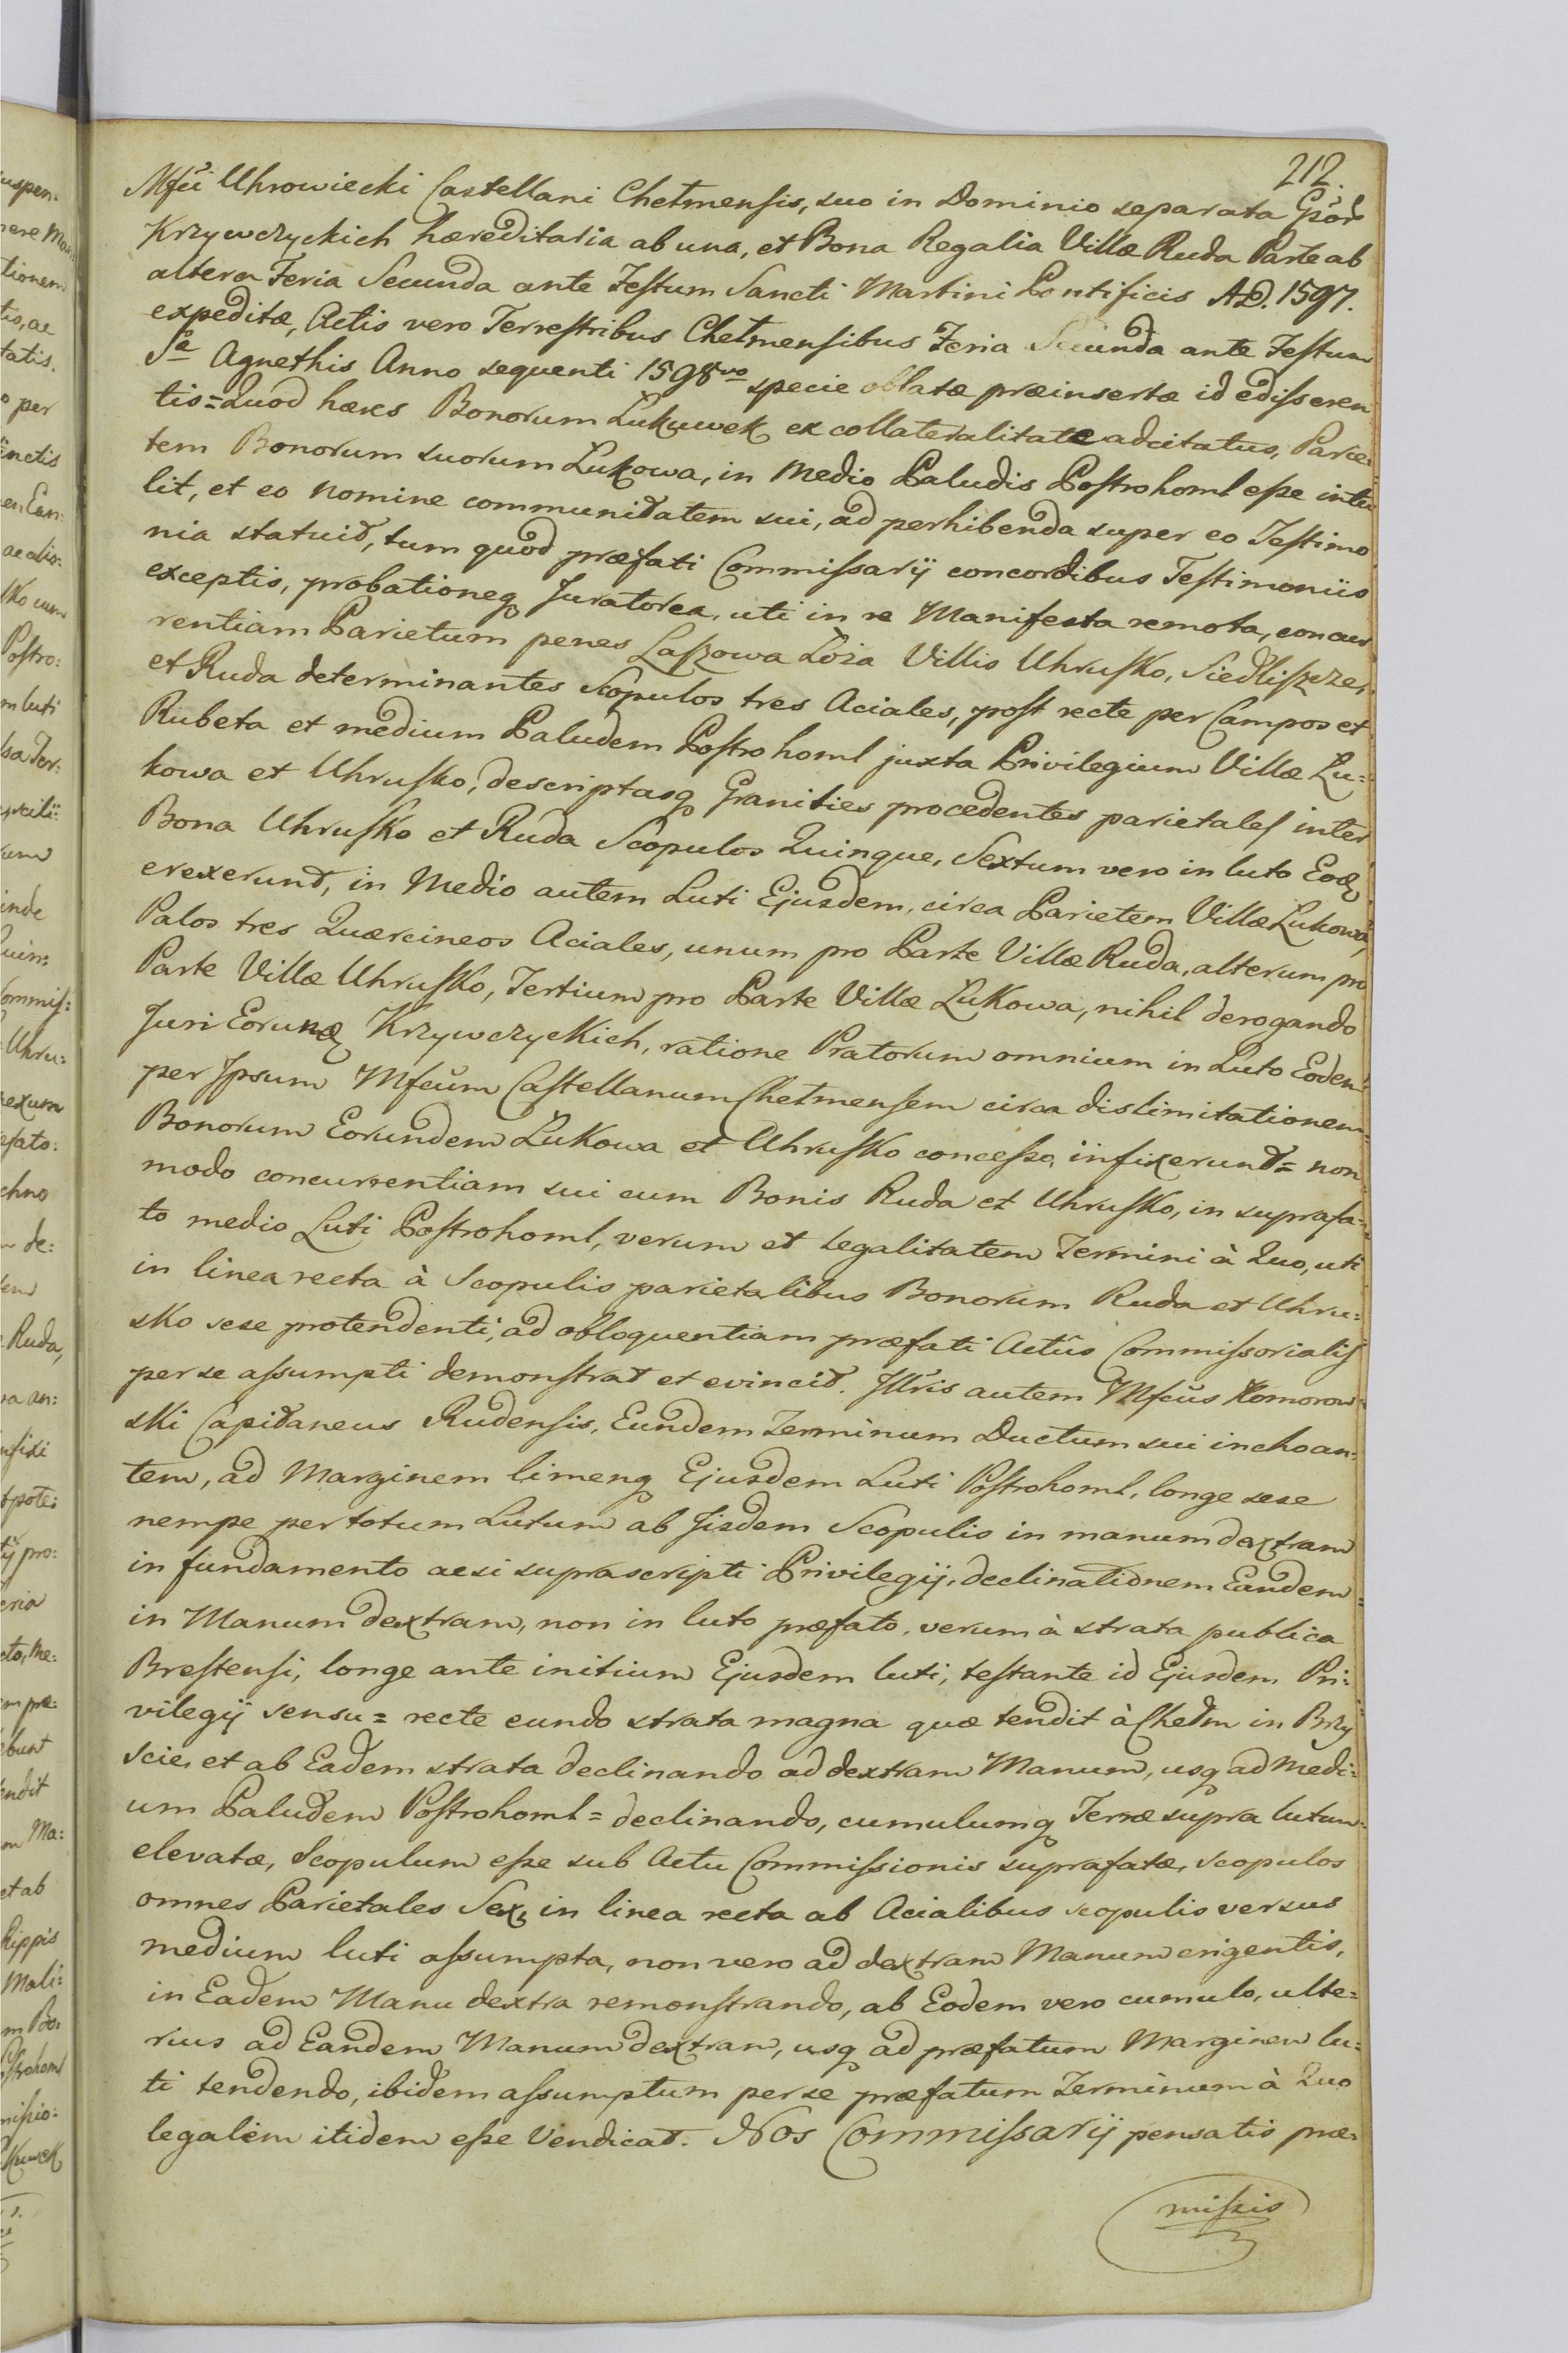 212.
Mfci Uhrowiecki Castellani Chełmensis, suo in Dominio separata Gsór
Krzywczyckich hæreditaria ab una, et Bona Regalia Villæ Ruda Parte ab
altera Feria Secunda ante Festum Sancti Martini Pontificis A.D. 1597.
expeditæ, Actis vero Terrestribus Chełmensibus Feria Secunda ante Festum
Sæ Agnethis Anno sequenti 1598vo specie oblatæ præinsertæ id edisseren
tis = Quod hæres Bonorum Lukuwek ex collateralitate adcitatus, Parie:
tem Bonorum suorum Lukowa, in Medio Paludis Postrohoml esse intu
lit, et eo Nomine communitatem sui, ad perhibenda super eo Testimo
nia statuit, tum quod præfati Commissarij concordibus Testimoniis
exceptis, probationeq Juratorea, uti in re Manifesta remota, concur
rentiam Parietum penes Laszowa Łoża Villis Uhrusko, Siedliszcze,
et Ruda determinantes Scopulos tres Aciales, post recte per Campos et
Rubeta et medium Paludem Postrohoml juxta Privilegium Villæ Lu:
kowa et Uhrusko, descriptasq Granities procedentes parietales inter
Bona Uhrusko et Ruda Scopulos Quinque, Sextum vero in luto Eodẽ
erexerunt, in Medio autem Luti Ejusdem, circa Parietem Villæ Lukowa,
Palos tres Quærcineos Aciales, unum pro Parte Villæ Ruda, alterum pro
Parte Villæ Uhrusko, Tertium pro Parte Villæ Lukowa, nihil derogando
Juri Eorund Krzywczyckich, ratione Pratorum omnium in Luto Eodem
per Ipsum Mfcum Castellanum Chełmensem circa dislimitationem
Bonorum Eorundem Lukowa et Uhrusko concesso, infixerunt = non
modo concurrentiam sui cum Bonis Ruda et Uhrusko, in suprafa:
to medio Luti Postrohoml, verum et legalitatem Termini à Quo, uti
in linea recta à Scopulis parietalibus Bonorum Ruda et Uhru:
sko sese protendenti, ad obloquentiam præfati Actûs Commissorialis
per se assumpti demonstrat et evincit. Illris autem Mfcus Komorow
ski Capitaneus Rudensis, Eundem Terminum Ductum sui inchoan:
tem, ad Marginem limenq Ejusdem Luti Postrohoml, longe sese
nempe per totum Lutum ab Jisdem Scopulis in manum dextram
in fundamento acsi suprascripti Privilegij, declinationem Eandem
in Manum dextram, non in luto præfato, verum à strata publica
Brestensi, longe ante initium Ejusdem luti, testante id Ejusdem Pri:
vilegij sensu = recte eundo strata magna quæ tendit à Chełm in Brzy
scie, et ab Eadem strata declinando ad dextram Manum, usq ad Medi:
um Paludem Postrohoml = declinando, cumulumq Terræ supra lutum
elevatæ, Scopulum esse sub Actu Commissionis suprafatæ, scopulos
omnes Parietales Sex, in linea recta ab Acialibus scopulis versus
medium luti assumpta, non vero ad dextram Manum erigentis,
in Eadem Manu dextra remonstrando, ab Eodem vero cumulo, ulte:
rius ad Eandem Manum dextram, usq ad præfatum Marginem lu:
ti tendendo, ibidem assumptum per se præfatum Terminum à Quo
legalem itidem esse Vendicat. Nos Commissarij pensatis præ:
missis